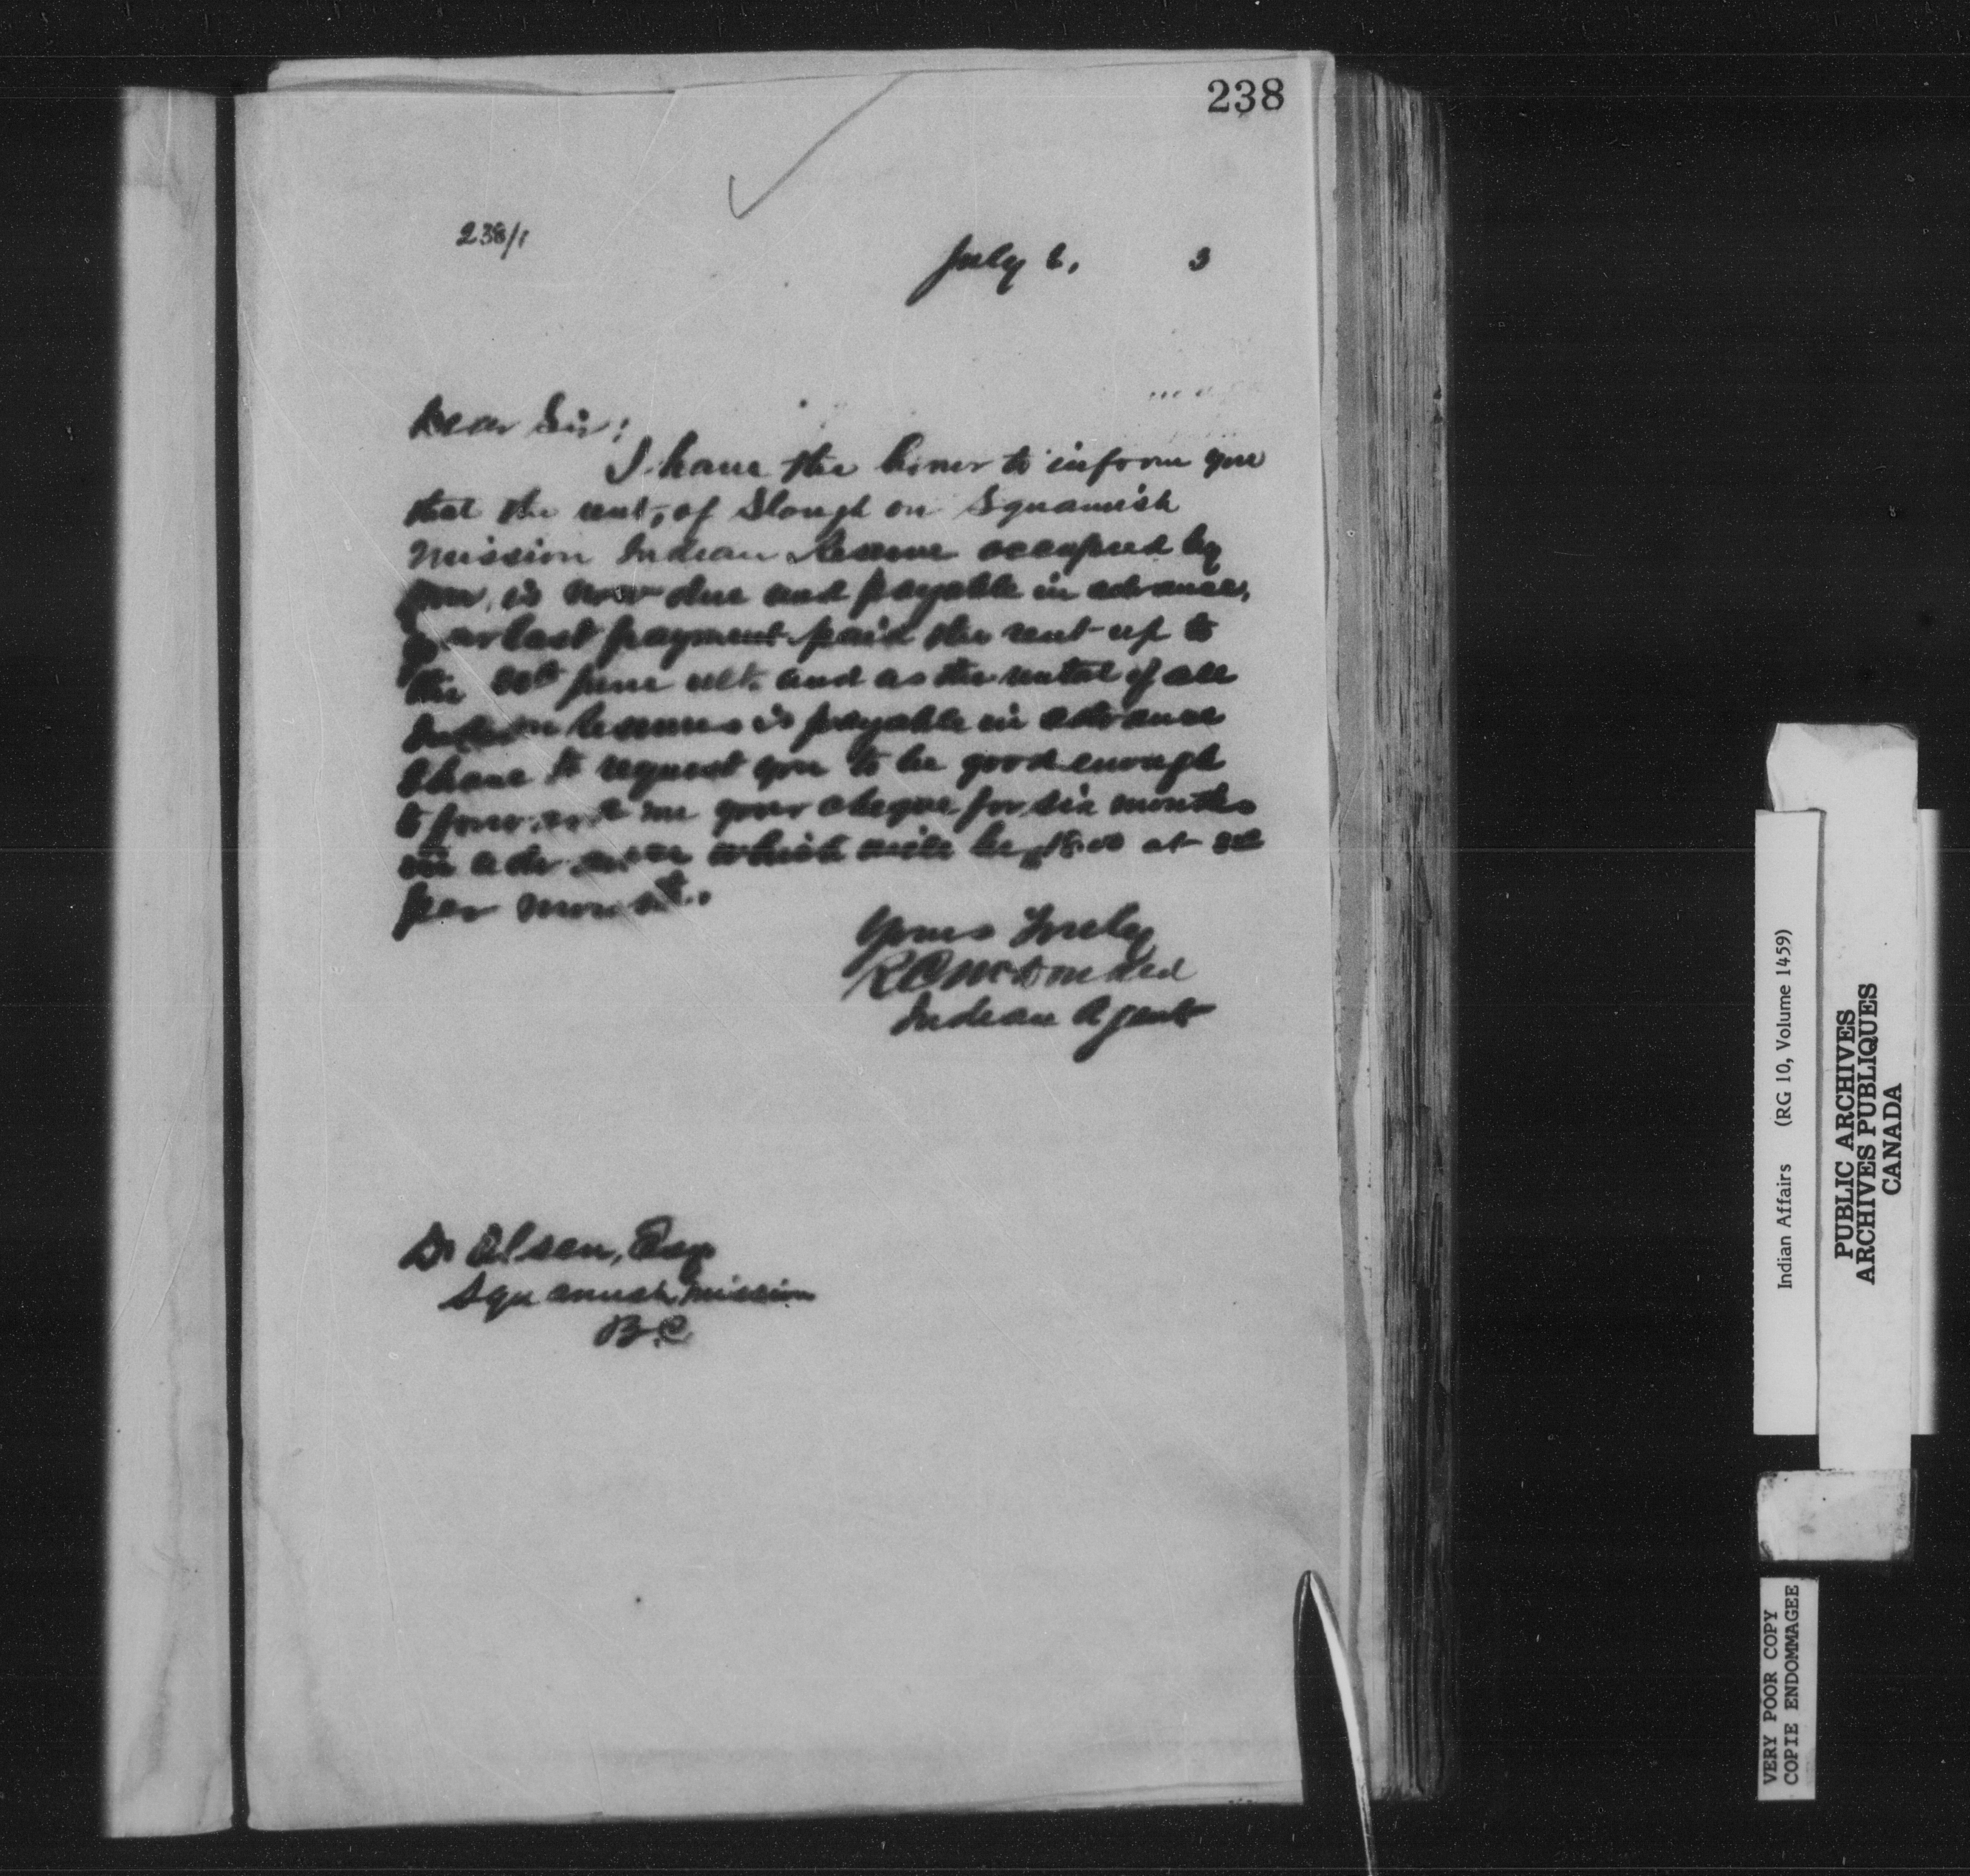 238
238/1
July 6, 3
Dear Sir:
I have the honor to inform you
that the rent, of Slough on Squamish
Mission Indian Reserve occupied by
you, is now due and payable in advance,
your last payment paid the rent up to
the 30th June ult. and as the rental of all
Indian Reserves is payable in advance
I have to request you to be good enough
to forward me your cheque for six months
in advance which will be $18.00 at
per month.
Yours Truly
Indian Agent
D. Olsen, Esq
Squamish Mission
B.C.
Indian Affairs (RG 10, Volume 1459)
PUBLIC ARCHIVES
ARCHIVES PUBLIQUES
CANADA
VERY POOR COPY
COPIE ENDOMMAGEE